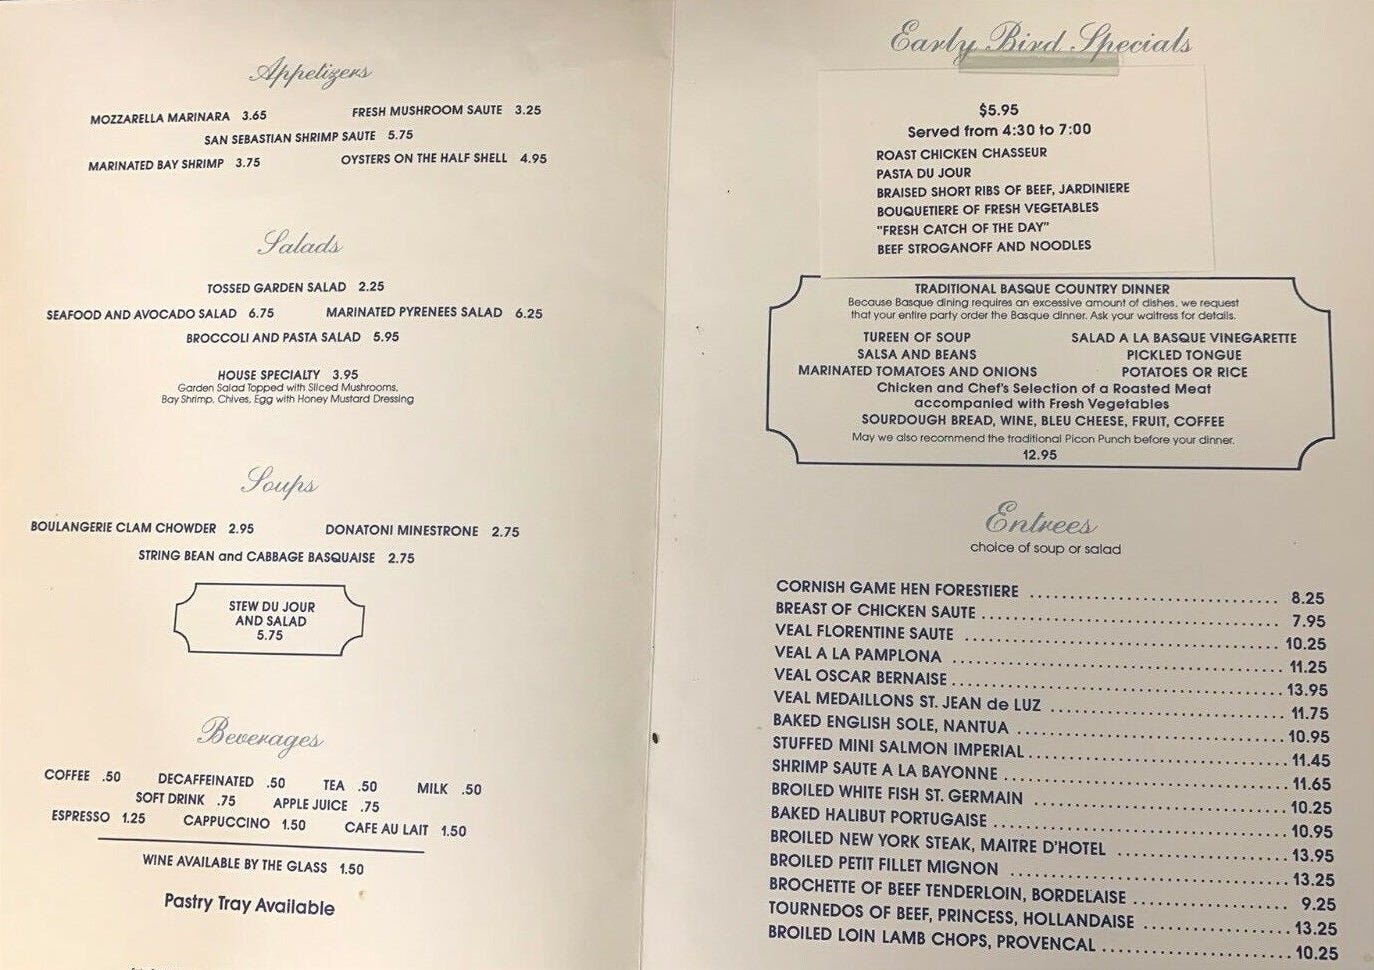 Appetizers
MOZZARELLA MARINARA 3.65 FRESH MUSHROOM SAUTE 3.25
SAN SEBASTIAN SHRIMP SAUTE 5.75
MARINATED BAY SHRIMP 3.75 OYSTERS ON THE HALF SHELL 4.95
Salads
TOSSED GARDEN SALAD 2.25
SEAFOOD AND AVOCADO SALAD 6.75 MARINATED PYRENEES SALAD 6.25
BROCCOLI AND PASTA SALAD 5.95
HOUSE SPECIALTY 3.95
Garden Salad Topped with Sliced Mushrooms,
Bay Shrimp, Chives, Egg with Honey Mustard Dressing
Soups
BOULANGERIE CLAM CHOWDER 2.95 DONATONI MINESTRONE 2.75
STRING BEAN and CABBAGE BASQUAISE 2.75
STEW DU JOUR
AND SALAD
5.75
Beverages
COFFEE .50 DECAFFEINATED .50 TEA .50 MILK .50
SOFT DRINK .75 APPLE JUICE .75
ESPRESSO 1.25 CAPPUCCINO 1.50 CAFE AU LAIT 1.50
WINE AVAILABLE BY THE GLASS 1.50
Pastry Tray Available
Early Bird Specials
$5.95
Served from 4:30 to 7:00
ROAST CHICKEN CHASSEUR
PASTA DU JOUR
BRAISED SHORT RIBS OF BEEF, JARDINIERE
BOUQUETIERE OF FRESH VEGETABLES
"FRESH CATCH OF THE DAY"
BEEF STROGANOFF AND NOODLES
TRADITIONAL BASQUE COUNTRY DINNER
Because Basque dining requires an excessive amount of dishes, we request
that your entire party order the Basque dinner. Ask your waitress for details.
TUREEN OF SOUP SALAD A LA BASQUE VINEGARETTE
SALSA AND BEANS PICKLED TONGUE
MARINATED TOMATOES AND ONIONS POTATOES OR RICE
Chicken and Chef's Selection of a Roasted Meat
accompanied with Fresh Vegetables
SOURDOUGH BREAD, WINE, BLEU CHEESE, FRUIT, COFFEE
May we also recommend the traditional Picon Punch before your dinner.
12.95
Entrees
choice of soup or salad
CORNISH GAME HEN FORESTIERE 8.25
BREAST OF CHICKEN SAUTE 7.95
VEAL FLORENTINE SAUTE 10.25
VEAL A LA PAMPLONA 11.25
VEAL OSCAR BERNAISE 13.95
VEAL MEDAILLONS ST. JEAN de LUZ 11.75
BAKED ENGLISH SOLE, NANTUA 10.95
STUFFED MINI SALMON IMPERIAL 11.45
SHRIMP SAUTE A LA BAYONNE 11.65
BROILED WHITE FISH ST. GERMAIN 10.25
BAKED HALIBUT PORTUGAISE 10.95
BROILED NEW YORK STEAK, MAITRE D'HOTEL 13.95
BROILED PETIT FILLET MIGNON 13.25
BROCHETTE OF BEEF TENDERLOIN, BORDELAISE 9.25
TOURNEDOS OF BEEF, PRINCESS, HOLLANDAISE 13.25
BROILED LOIN LAMB CHOPS, PROVENCAL 10.25